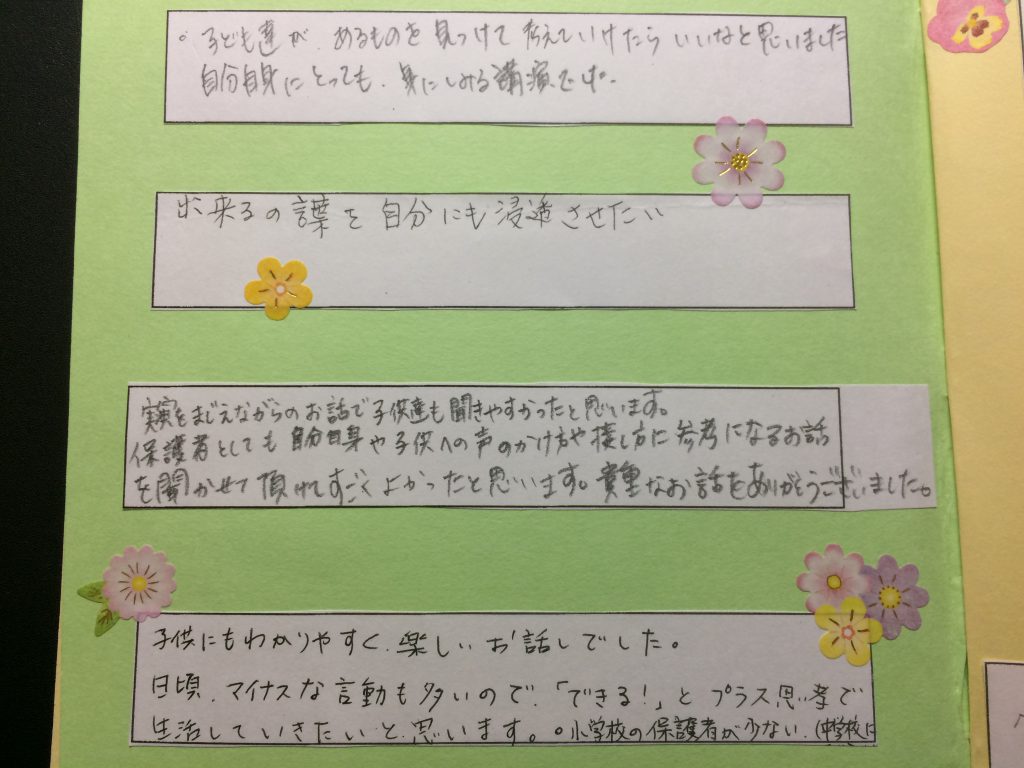 。子ども達が、あるものを見つけて考えていけたらいいなと思いました
自分自身にとっても、身にしみる講演でした。
出来るの言葉を自分にも浸透させたい
実演をまじえながらのお話で子供達も聞きやすかったと思います。
保護者としても自分自身や子供への声のかけ方や接し方に参考になるお話
を聞かせて頂けてすごくよかったと思います。貴重なお話をありがとうございました。
子供にもわかりやすく、楽しいお話しでした。
日頃、マイナスな言動も多いので、「できる!」とプラス思考で
生活していきたいと思います。。小学校の保護者が少ない、(中学校に